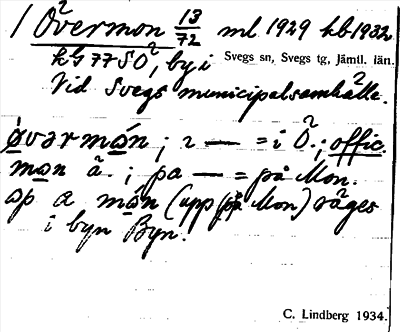 1 Övermon 13/72 ml 1929 hb 1932
hG 77 SO², by i Svegs sn, Svegs tg, Jämtl. län.
Vid Svegs municipalsamhälle.
ǿvarmón ; ı — = i Ö. ; offic.
mon ä. ; pa — = på Mon.
ap a món (upp på Mon) säges
i byn Byn.
C. Lindberg 1934.